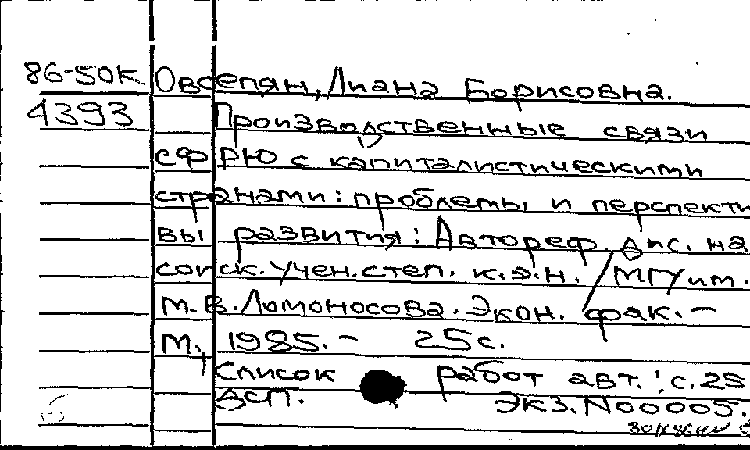 86-50к Овсепян, Лиана Борисовна.
4393 Производственные связи
СФРЮ с капиталистическими
странами: проблемы и перспекти
вы развития: Автореф. дис. на
соиск. учен. степ. к.э.н. / МГУ им.
М.В. Ломоносова. Экон. фак. –
М., 1985. – 25 с.
Список работ авт.: с. 25
ДСП. Экз. N00005.